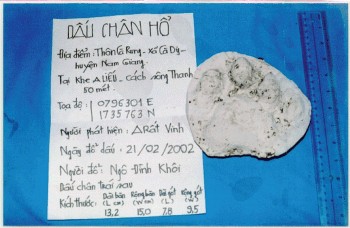 DẤU CHÂN HỔ
Địa điểm: Thôn Cà Rung - Xã Cà Dy -
huyện Nam Giang.
Tại Khe A LIÊU - cách sông Thanh
50 mét.
Toạ độ: 0796301 E
1735763 N
Người phát hiện: ARất Vinh
Ngày đổ dấu: 21/02/2002
Người đổ: Ngô Đình Khôi
Dấu chân trái sau
Kích thước: Dài bàn (L cm) Rộng bàn (W cm) Dài gót (L) Rộng gót (W)
13,2 15,0 7,8 9,5